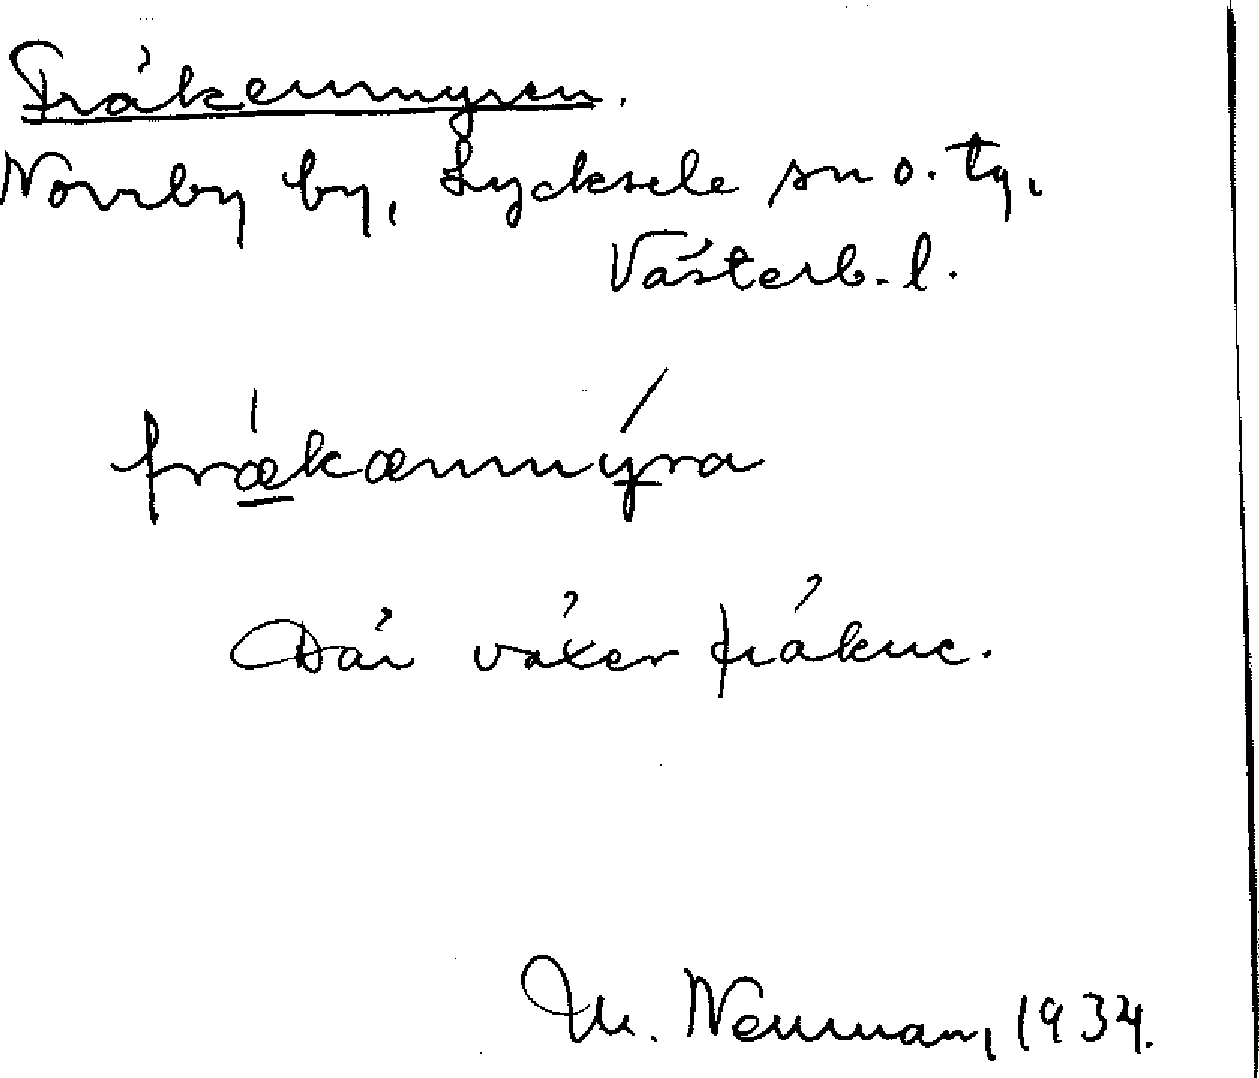 Fräkenmyren.
Norrby by, Lycksele sn o. tg,
Västerb. l.
frækænmýra
Där växer fräkne.
M. Neuman, 1934.